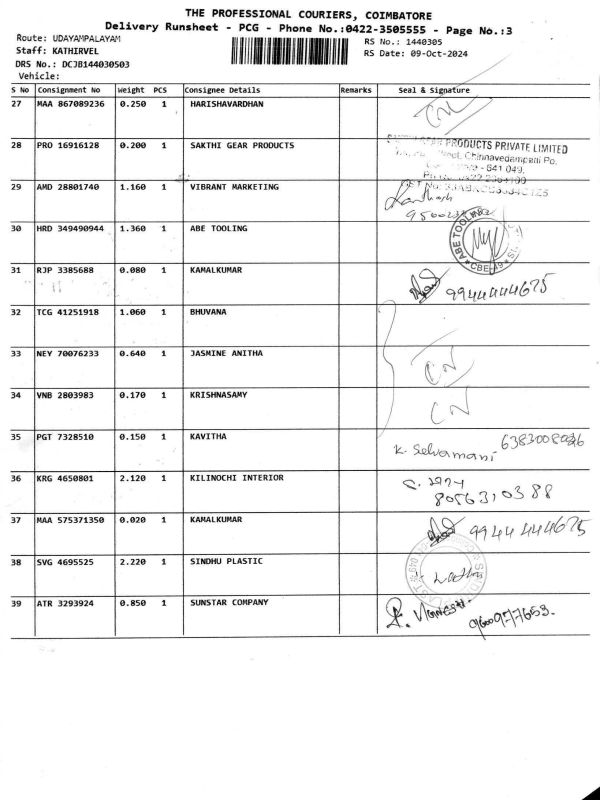 THE PROFESSIONAL COURIERS, COIMBATORE
Delivery Runsheet - PCG - Phone No.:0422-3505555 - Page No.:3
Route: UDAYAMPALAYAM
RS No.: 1440305
Staff: KATHIRVEL
RS Date: 09-Oct-2024
DRS No.: DCJB144030503
Vehicle:
S No Consignment No Weight PCS Consignee Details Remarks Seal & Signature
27 MAA 867089236 0.250 1 HARISHAVARDHAN CN
28 PRO 16916128 0.200 1 SAKTHI GEAR PRODUCTS
GEAR PRODUCTS PRIVATE LIMITED
Chinnavedampatti Po.
641 049.
29 AMD 28801740 1.160 1 VIBRANT MARKETING
30 HRD 349490944 1.360 1 ABE TOOLING
ABE TOOLING
CBE-49
31 RJP 3385688 0.080 1 KAMALKUMAR 9944444675
32 TCG 41251918 1.060 1 BHUVANA
33 NEY 70076233 0.640 1 JASMINE ANITHA CN
34 VNB 2803983 0.170 1 KRISHNASAMY CN
35 PGT 7328510 0.150 1 KAVITHA K. Selvamani
36 KRG 4650801 2.120 1 KILINOCHI INTERIOR
8056310388
37 MAA 575371350 0.020 1 KAMALKUMAR 9944444675
38 SVG 4695525 2.220 1 SINDHU PLASTIC
39 ATR 3293924 0.850 1 SUNSTAR COMPANY